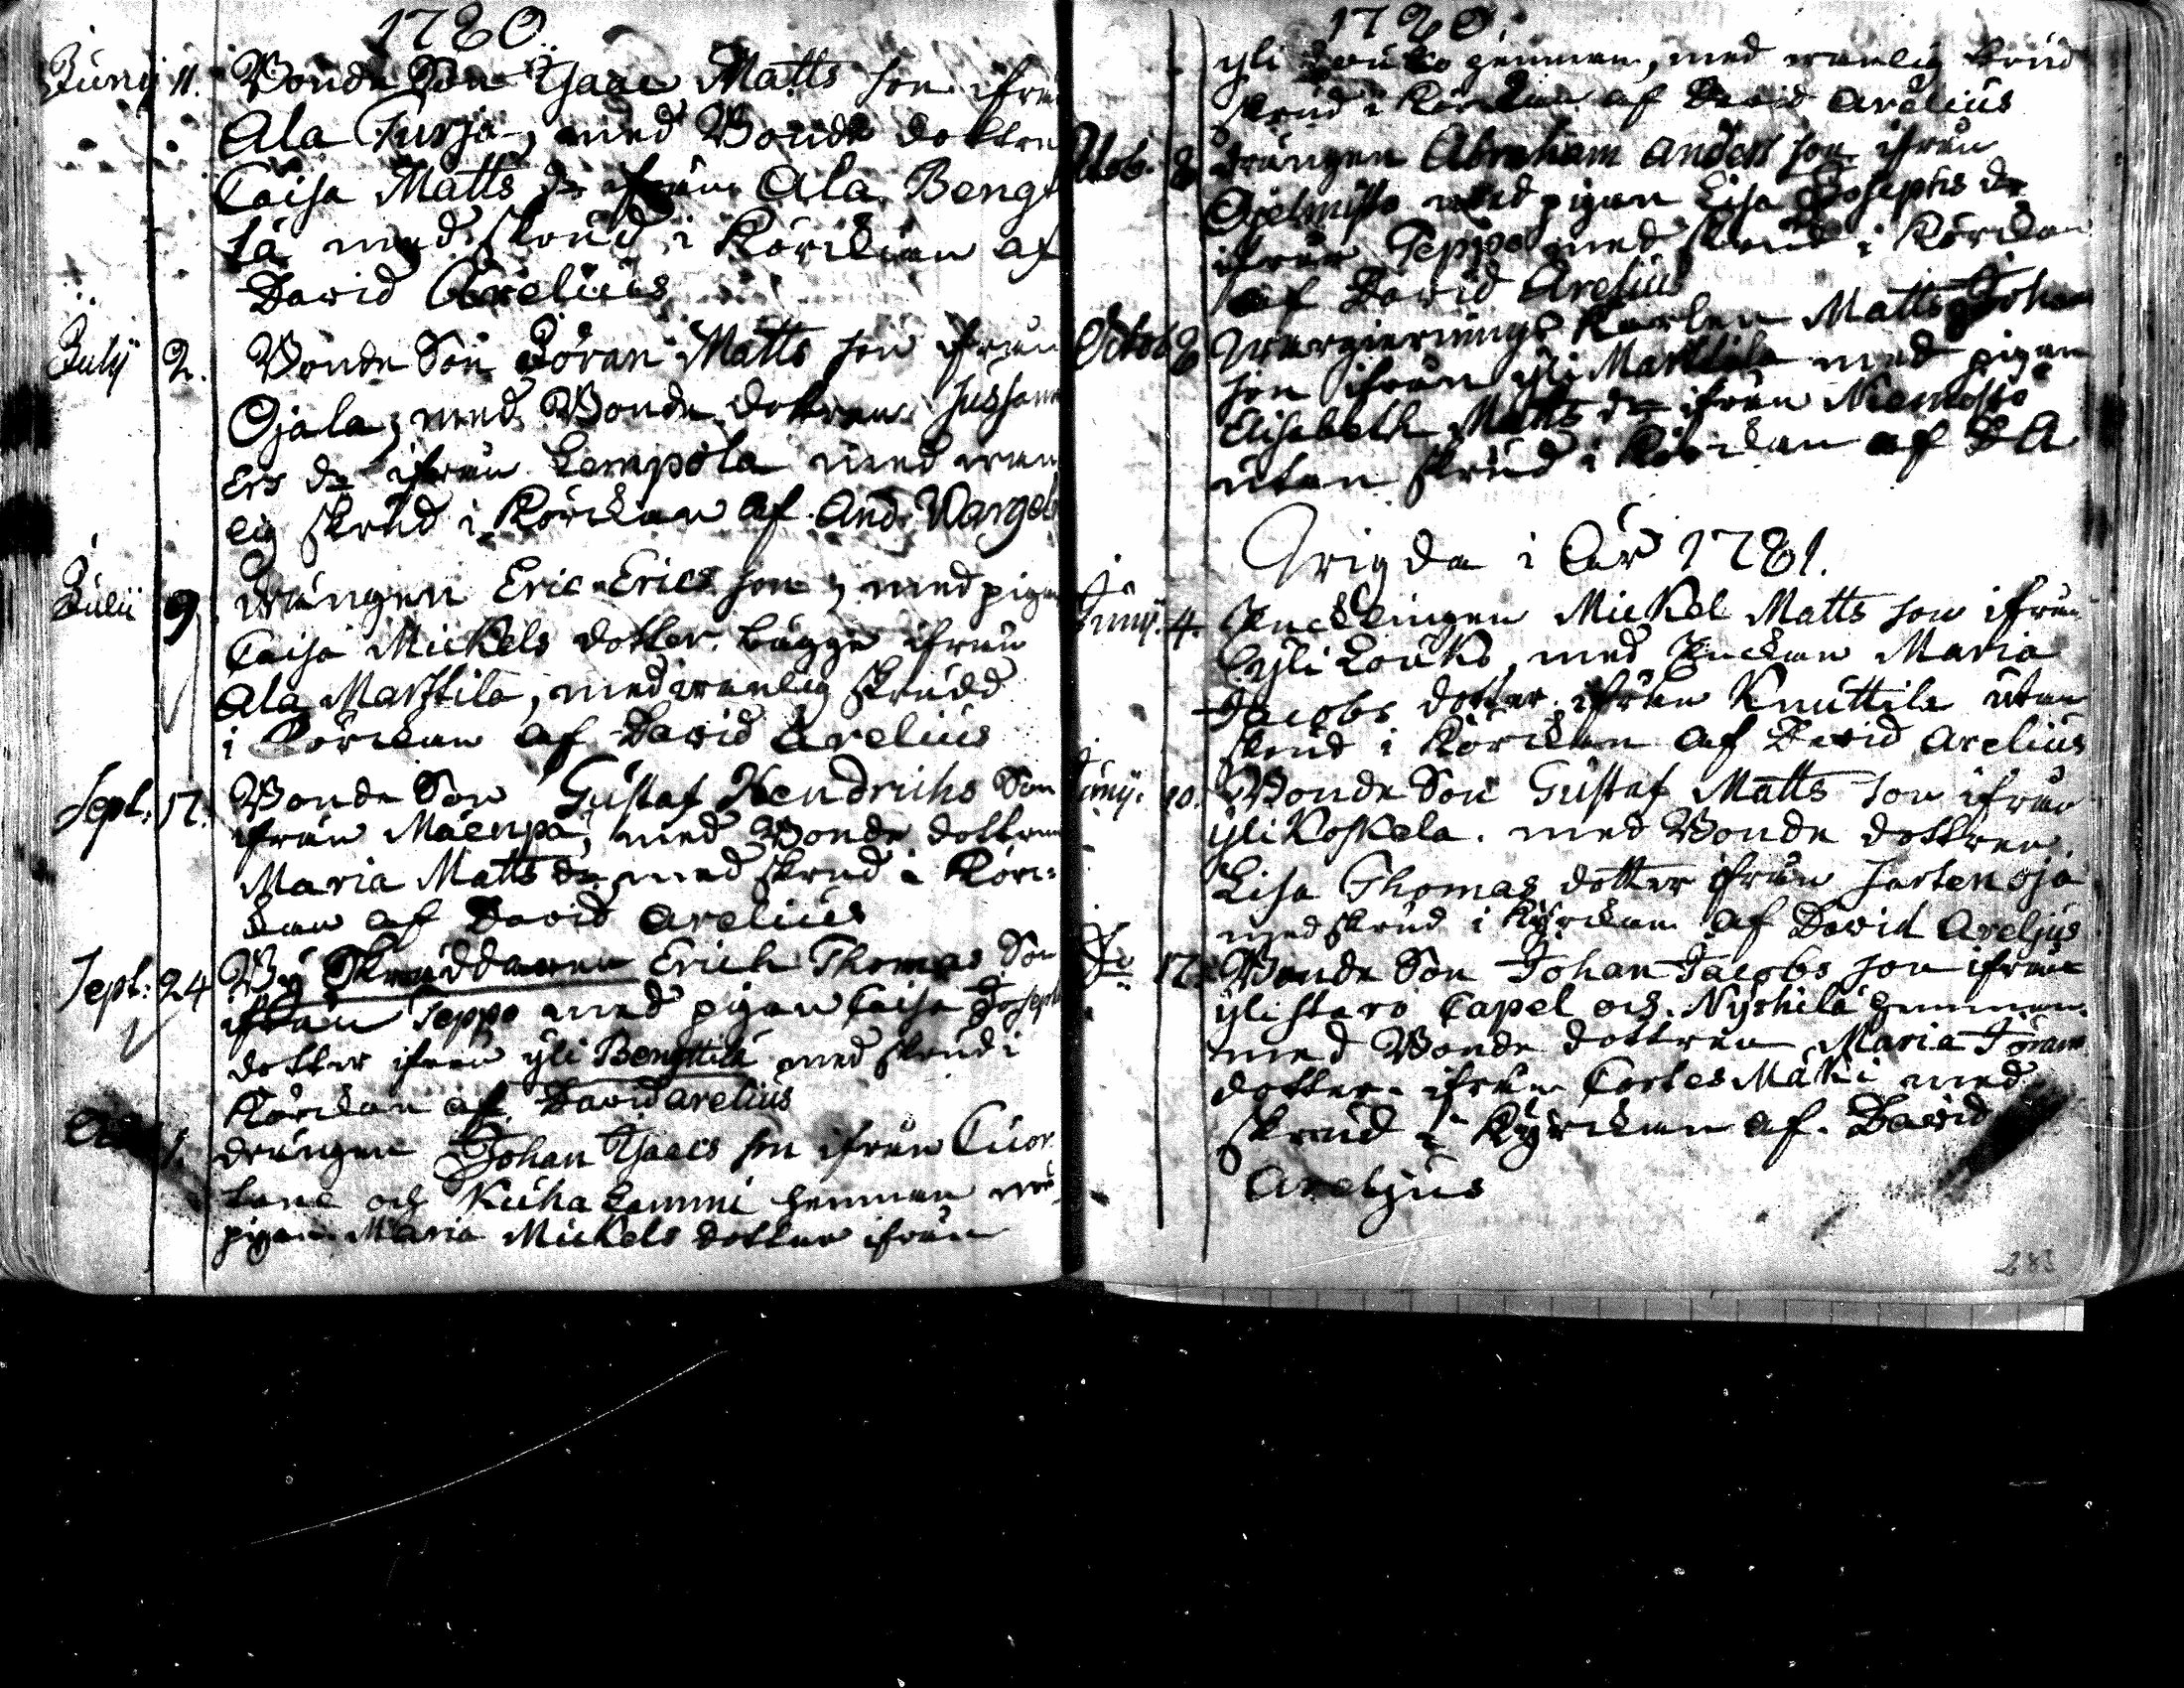 1780.
Junij 11. Bonde Son Isaac Matts son ifrån
Ala Turja, med Bonde dottren
Caisa Matts dr ifrån Ala Bengt
la med skrud i Körckan af
David Arelius
Julij 2. Bonde Son Jöran Matts son ifrån
Ojala, med Bonde dottren Sussanna
Ers dr ifrån Lempola med wan
lig skrud i Körckan af And. Wargel
Julii 9. drängen Eric Erics son, med pigan
Caisa Mickels dotter. bägge ifrån
Ala Marttila, med wanlig skrudd
i Körckan af David Arelius
Sept. 17. Bonde Son Gustaf Hendrichs Son
ifrån Mäenpä, med Bonde dottren
Maria Matts dr med skrud i Kör-
ckan af David Arelius
Sept: 24 By Skräddaren Erich Thomas Son
ifrån Seppo med pigan Caisa Joseph
dotter ifrån yli Bengttila med skrud i
Körckan af David Arelius
1. drängen Johan Isaacs son ifrån Cuor
tane och Kuha Lammi hemman
pigan Maria Mickels dotter ifrån
1780.
yli Louko hemman, med wanlig brud
skrud i Körckan af David Arelius
Octob. 8 drängen Abraham Anders son ifrån
Ojelmisto med pigan Lisa Josephs dr
ifrån Seppo med skrud i Körckan
af David Arelius
Octob 8 Karlen Matts Johan
son ifrån yli Marttila med pigan
Elisabeth Matts dr ifrån Niemistö
utan skrud i Körckan af D A
Wigda i År 1781.
Junij. 4. Encklingen Mickel Matts son ifrån
yli Louko, med Enckan Maria
Jacobs dotter ifrån Knuttila utan
skrud i Körckan af David Arelius
Junij. 10. Bonde Son Gustaf Matts son ifrån
yli Koskela. med Bonde dottren
Lisa Thomas dotter ifrån Sartenoja
med skrud i Kyrckan af David Areljus
Do 17. Bonde Son Johan Jacobs son ifrån
ylistaro Capel och Nyrhilä hemman
med Bonde dottren Maria Jörans
dotter ifrån Cortes Mäki med
skrud i Kyrckan af David
Areljus
283